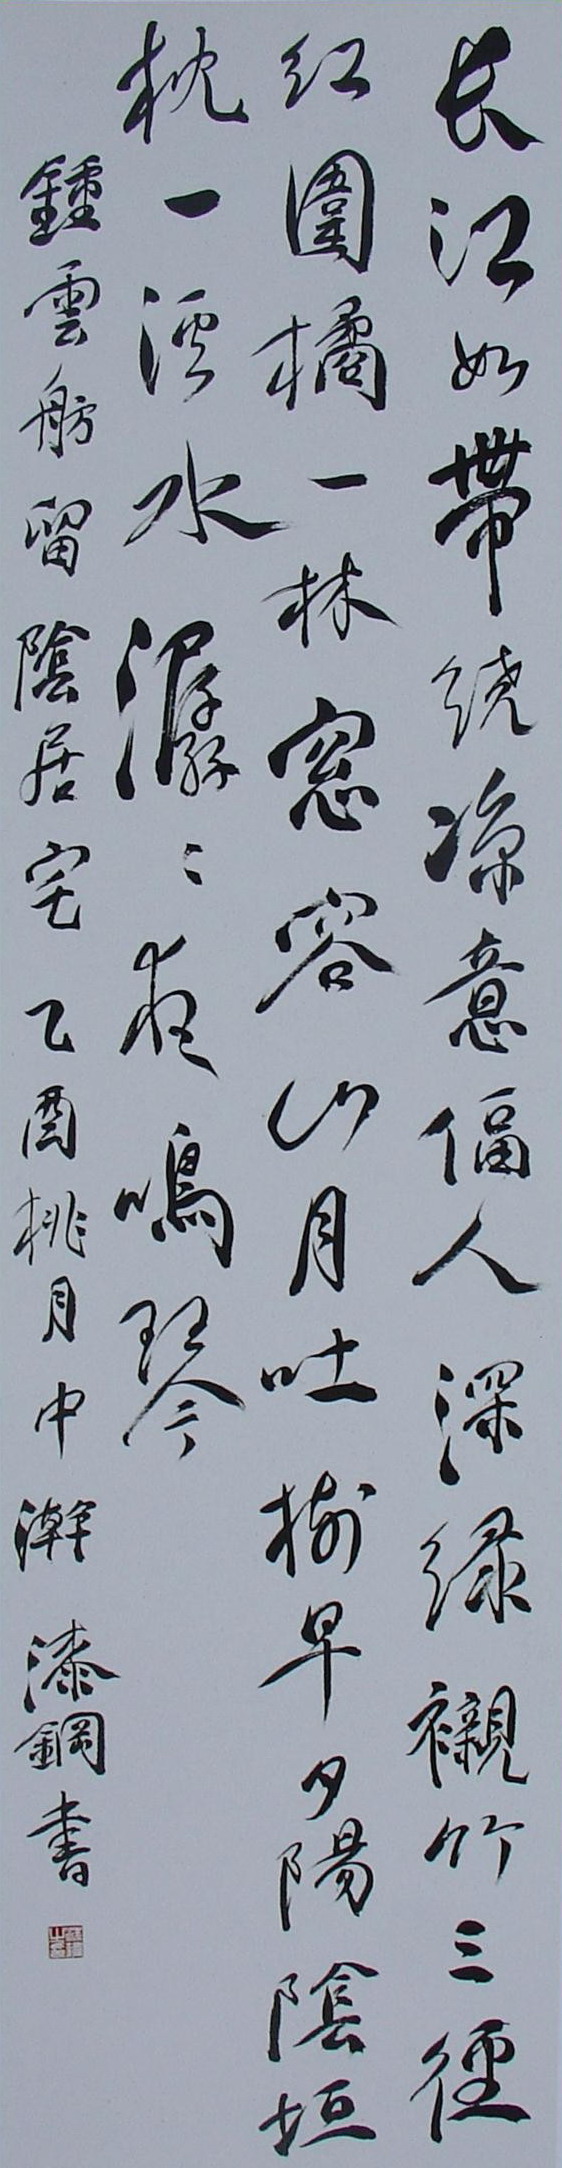 长江如帶绕凉意偪人深绿襯竹三徑
红圍橘一林窓容山月吐樹早夕陽陰垣
枕一溪水潺〻夜鳴琴
鍾雲舫留陰居宅乙酉桃月中澣漆鋼書